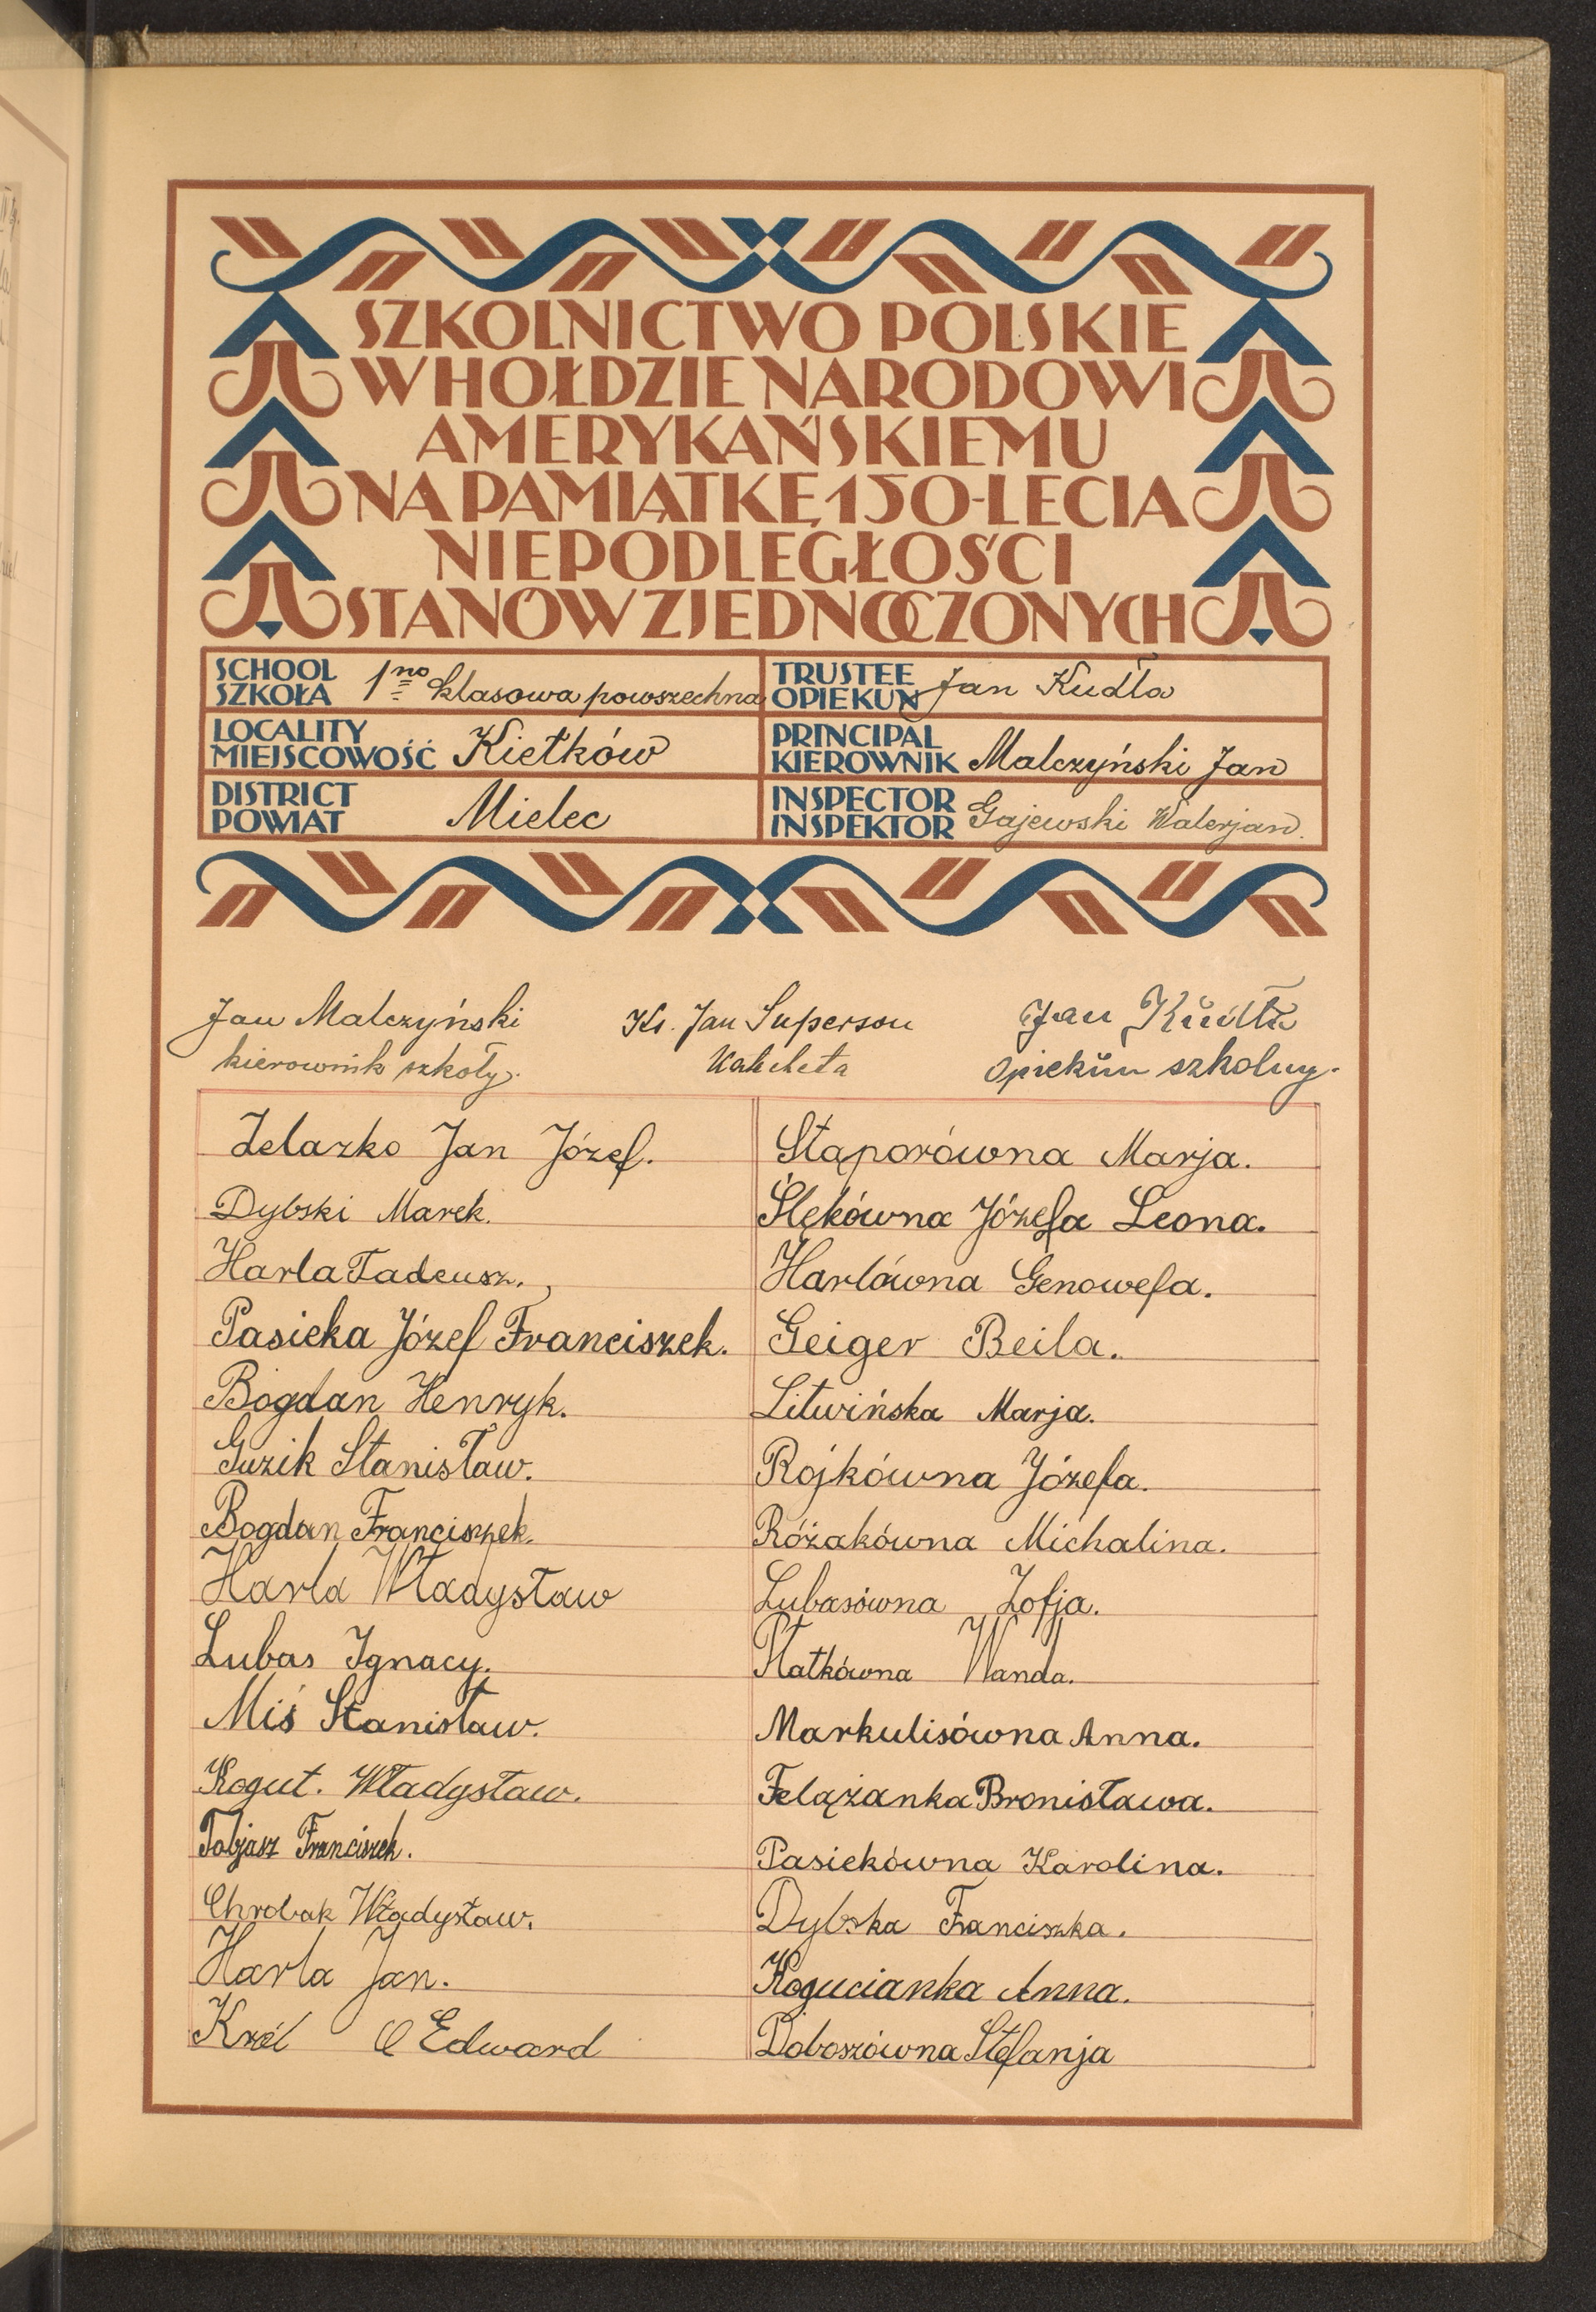 SZKOLNICTWO POLSKIE
W HOŁDZIE NARODOWI
AMERYKAŃSKIEMU
NA PAMIĄTKĘ 150-LECIA
NIEPODLEGŁOŚCI
STANÓW ZJEDNOCZONYCH
SCHOOL
SZKOŁA 1no klasowa powszechna
TRUSTEE
OPIEKUN Jan Kudła
LOCALITY
MIEJSCOWOŚĆ Kiełków
PRINCIPAL
KIEROWNIK Malczyński Jan
DISTRICT
POWIAT Mielec
INSPECTOR
INSPEKTOR Gajewski Walerjan.
Jan Malczyński
kierownik szkoły.
Ks. Jan Superson
Katecheta
Jan Kudła
opiekun szkolny.
Żelazko Jan Józef.
Dybski Marek.
Harla Tadeusz.
Pasieka Józef Franciszek.
Bogdan Henryk.
Guzik Stanisław.
Bogdan Franciszek.
Harla Władysław
Lubas Ignacy.
Miś Stanisław.
Kogut. Władysław.
Tobjasz Franciszek.
Chrobak Władysław.
Harla Jan.
Król Edward
Stąporówna Marja.
Ślękówna Józefa Leona.
Harlówna Genowefa.
Geiger Beila.
Litwińska Marja.
Rojkówna Józefa.
Różakówna Michalina.
Lubasówna Zofja.
Płatkówna Wanda.
Markulisówna Anna.
Felążanka Bronisława.
Pasiekówna Karolina.
Dybska Franciszka.
Kogucianka Anna.
Doboszówna Stefanja